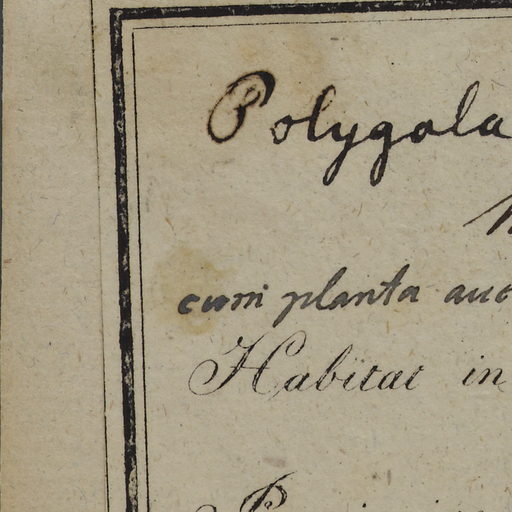 Polygala
cum planta
Habitat in